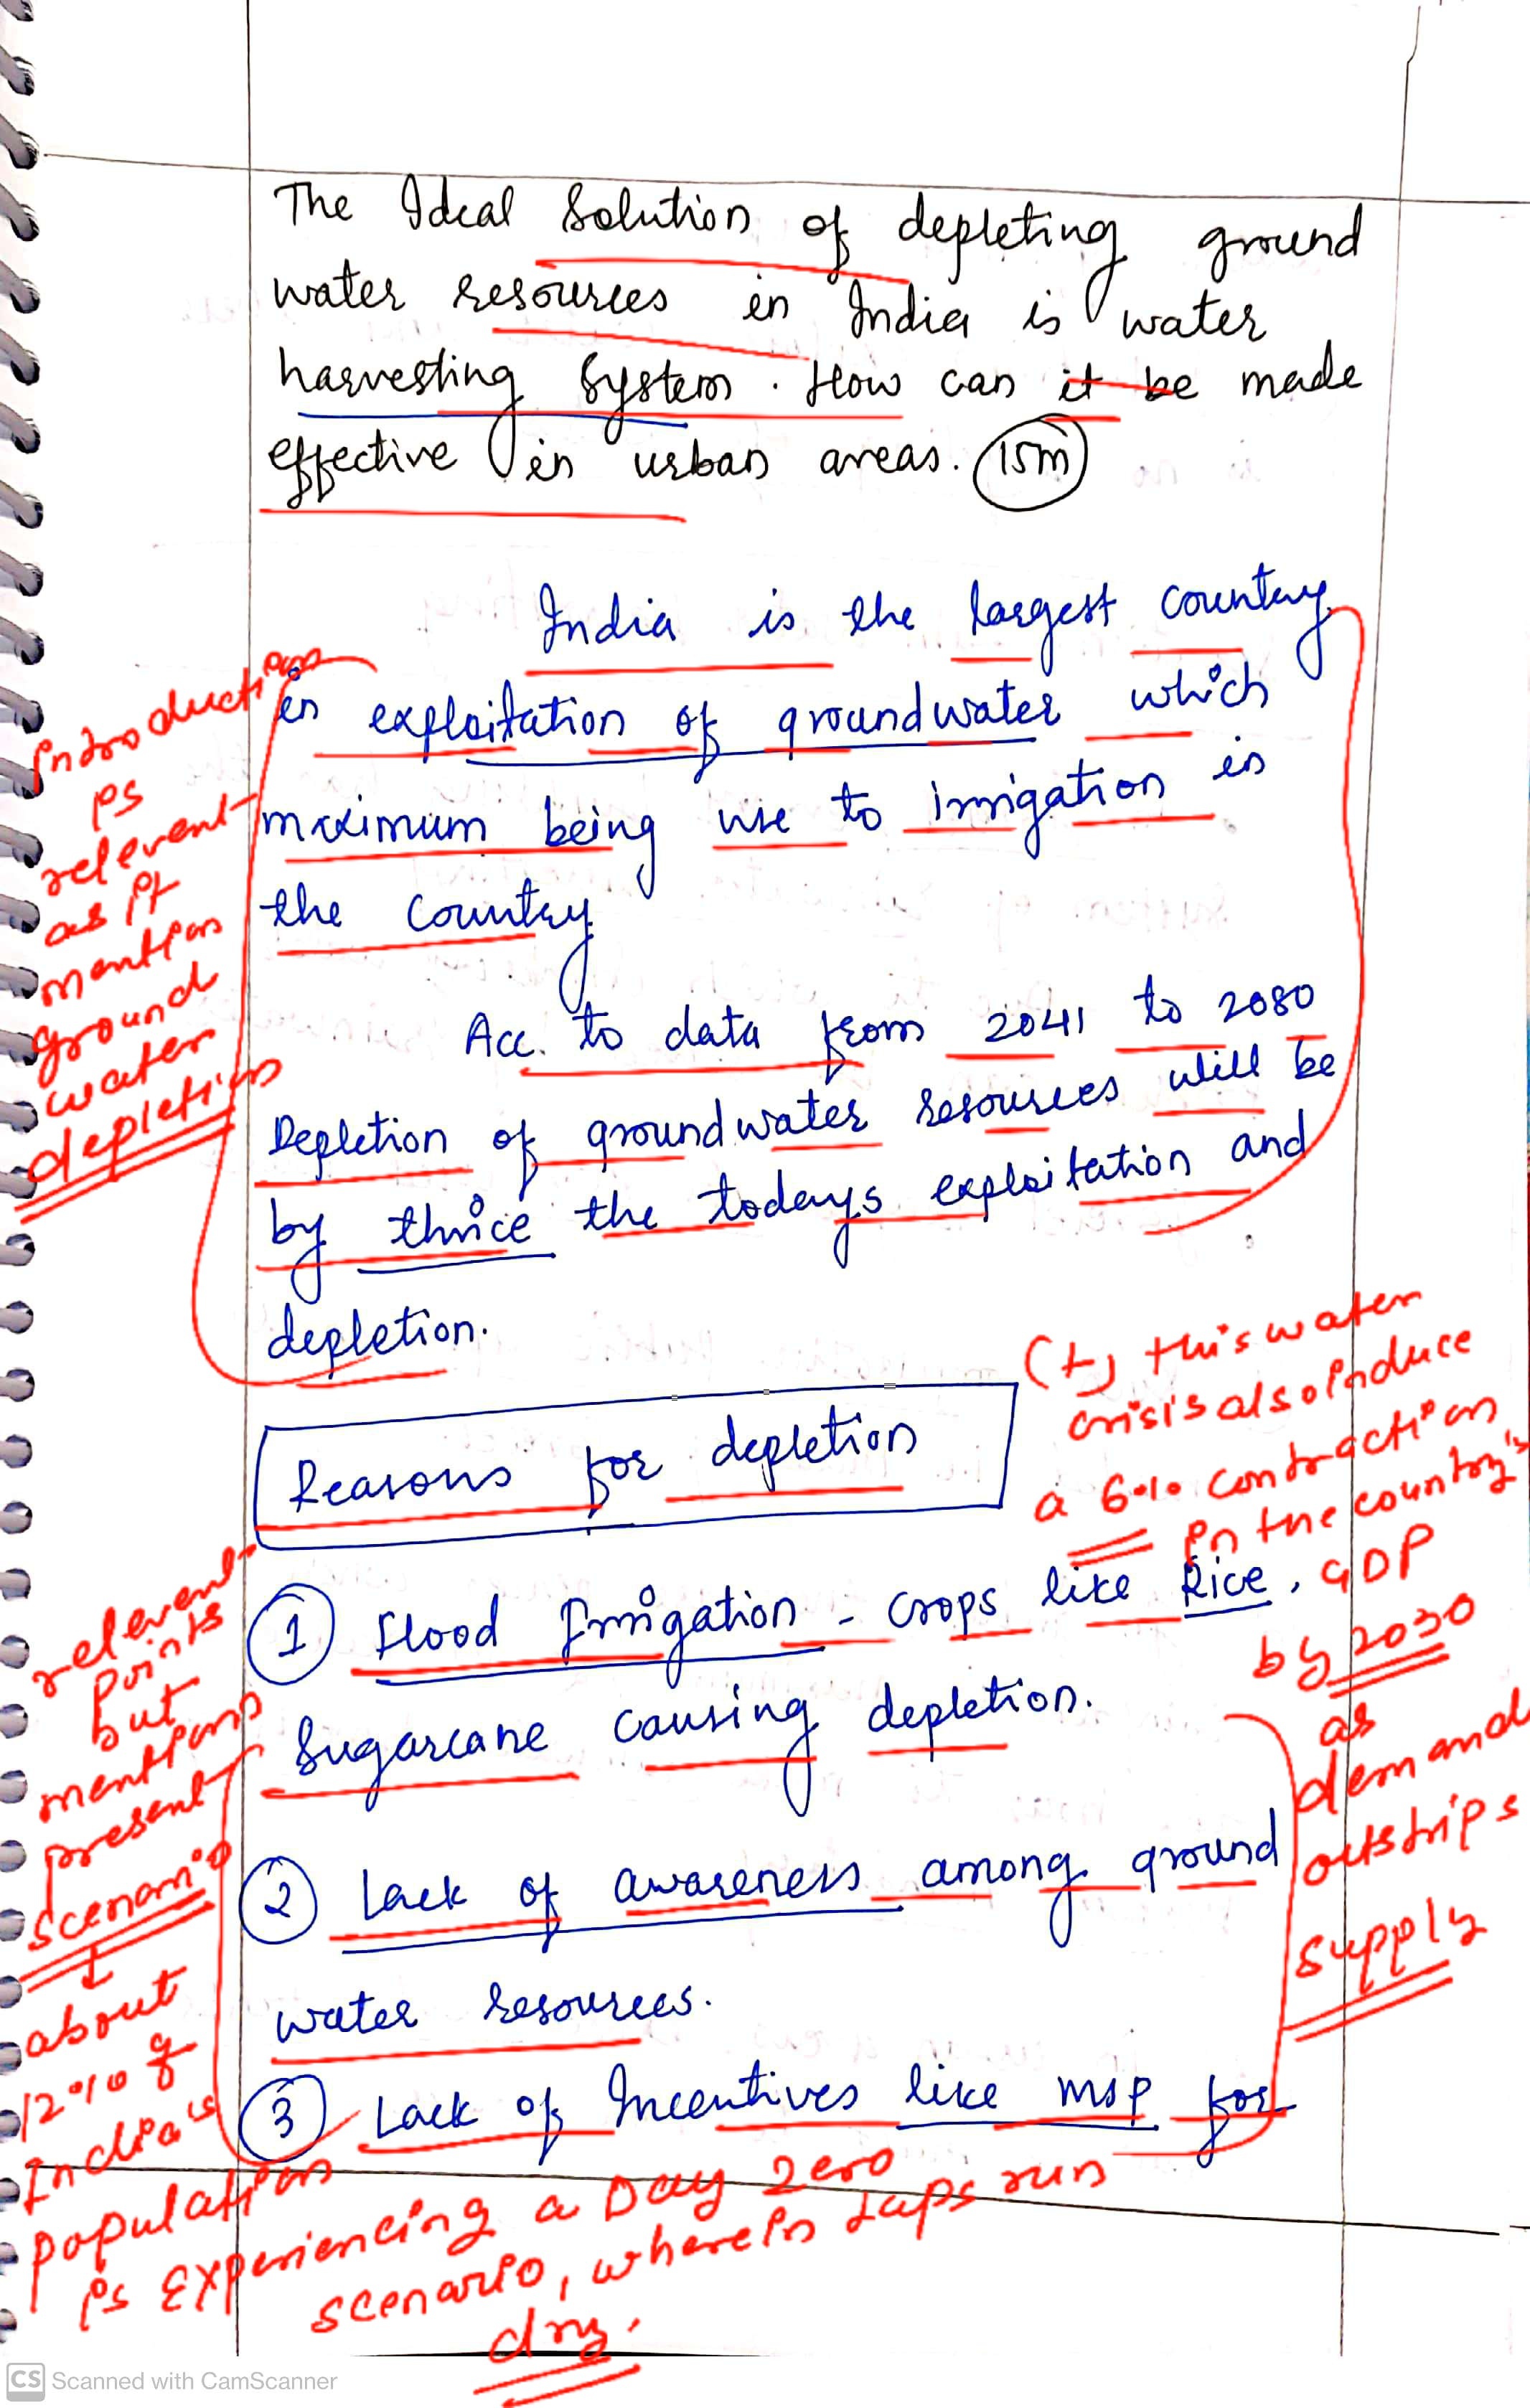 The Ideal Solution of depleting ground
water resources in India is water
harvesting system. How can it be made
effective in urban areas. 15m
India is the largest country
in exploitation of groundwater which
maximum being use to irrigation in
the country
Acc. to data from 2041 to 2080
Depletion of groundwater resources will be
by thrice the todays exploitation and
depletion.
Introduction
is
relevent
as it
mention
ground
water
depletion
Reasons for depletion
(+) this water
crisis also induce
a 6% contraction
in the country's
GDP
by 2030
as
demand
outstrips
supply
1 Flood Irrigation - crops like Rice,
Sugarcane causing depletion.
2 Lack of awareness among ground
water resources.
3 Lack of Incentives like MSP for
relevent
points
but
mentions
present
scenario
↓
about
12% of
India's
population
is experiencing a Day Zero
scenario, wherein taps run
dry.
CS Scanned with CamScanner